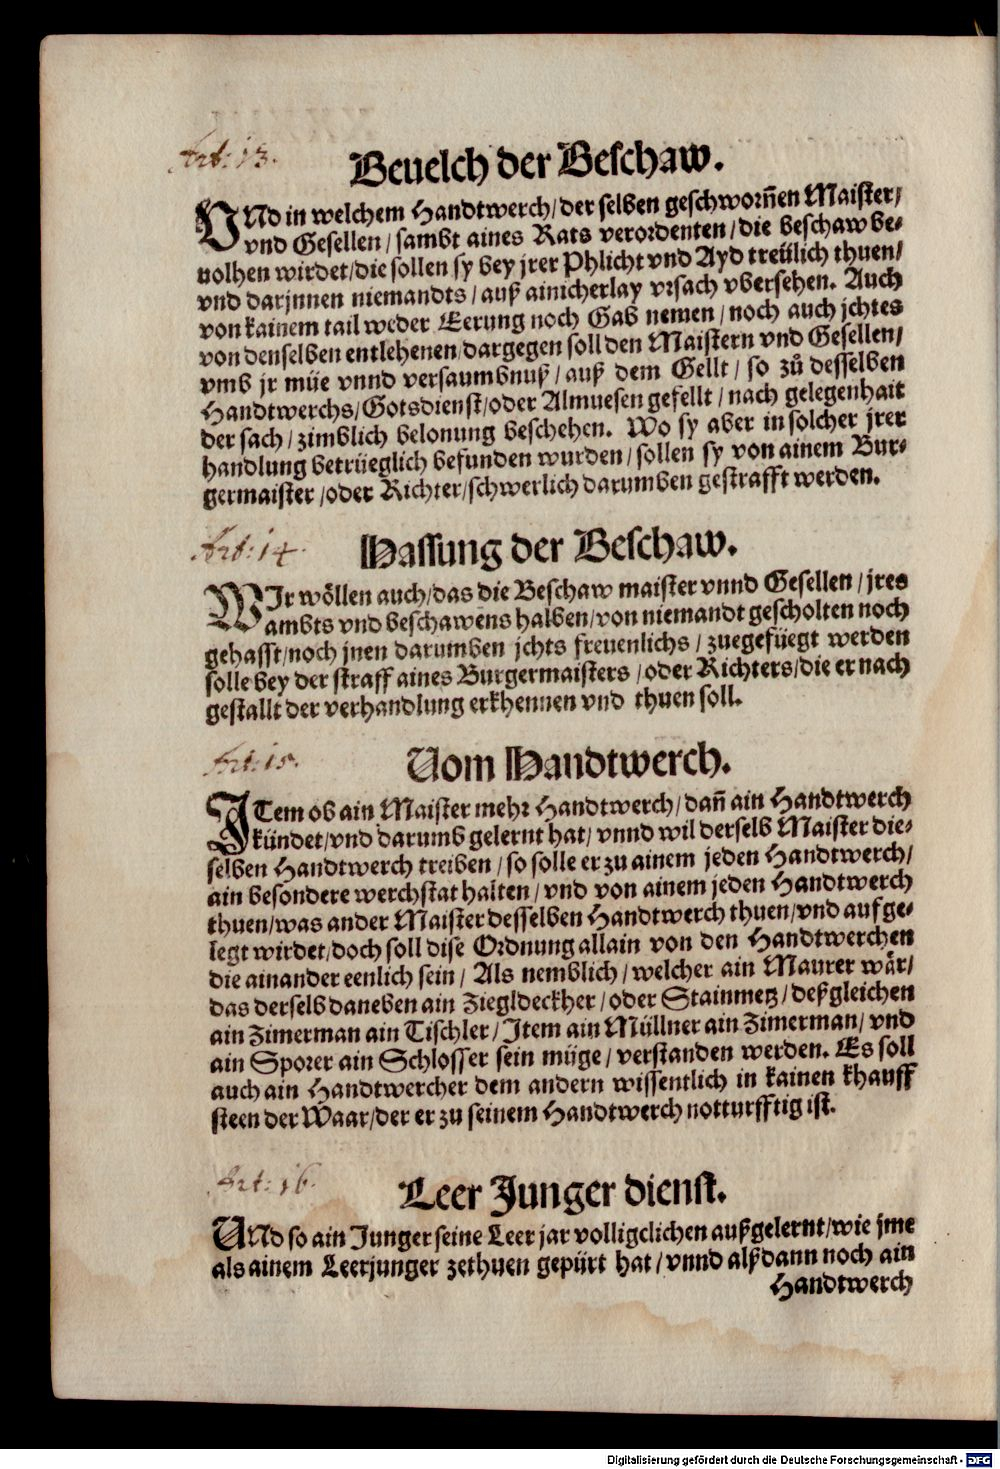 Art: 13.
Beuelch der Beschaw.
VNd in welchem Handtwerch/ der selben geschworñen Maister/
vnd Gesellen / sambt aines Rats verordenten / die beschaw be-
uolhen wirdet/ die sollen sy bey jrer Phlicht vnd Ayd treülich thuen/
vnd darjnnen niemandts / auß ainicherlay vrsach vbersehen. Auch
von kainem tail weder Eerung noch Gab nemen / noch auch jchtes
von denselben entlehenen/ dargegen soll den Maistern vnd Gesellen/
vmb jr müe vnnd versaumbnuß / auß dem Gellt / so zů desselben
Handtwerchs/ Gotsdienst/ oder Almuesen gefellt / nach gelegenhait
der sach / zimblich belonung beschehen. Wo sy aber in solcher jrer
handlung betrüeglich befunden wurden / sollen sy von ainem Bur-
germaister / oder Richter/ schwerlich darumben gestrafft werden.
Art: 14.
Hassung der Beschaw.
WIr wöllen auch/ das die Beschaw maister vnnd Gesellen / jres
ambts vnd beschawens halben/ von niemandt gescholten noch
gehasst/ noch jnen darumben jchts freuenlichs / zuegefüegt werden
solle bey der straff aines Burgermaisters / oder Richters/ die er nach
gestallt der verhandlung erkhennen vnd thuen soll.
Art: 15.
Vom Handtwerch.
ITem ob ain Maister mehr Handtwerch/ dañ ain Handtwerch
kündet/ vnd darumb gelernt hat/ vnnd wil derselb Maister die-
selben Handtwerch treiben / so solle er zu ainem jeden Handtwerch/
ain besondere werchstat halten / vnd von ainem jeden Handtwerch
thuen/ was ander Maister desselben Handtwerch thuen/ vnd aufge-
legt wirdet/ doch soll dise Ordnung allain von den Handtwerchen
die ainander eenlich sein / Als nemblich / welcher ain Maurer wär/
das derselb daneben ain Ziegldeckher / oder Stainmetz / deßgleichen
ain Zimerman ain Tischler / Item ain Müllner ain Zimerman/ vnd
ain Sporer ain Schlosser sein müge / verstanden werden. Es soll
auch ain Handtwercher dem andern wissentlich in kainen khauff
steen der Waar/ der er zu seinem Handtwerch notturfftig ist.
Art: 16.
Leer Junger dienst.
VNd so ain Junger seine Leer jar volligclichen außgelernt/ wie jme
als ainem Leerjunger zethuen gepürt hat / vnnd alßdann noch ain
Handtwerch
Digitalisierung gefördert durch die Deutsche Forschungsgemeinschaft - DFG